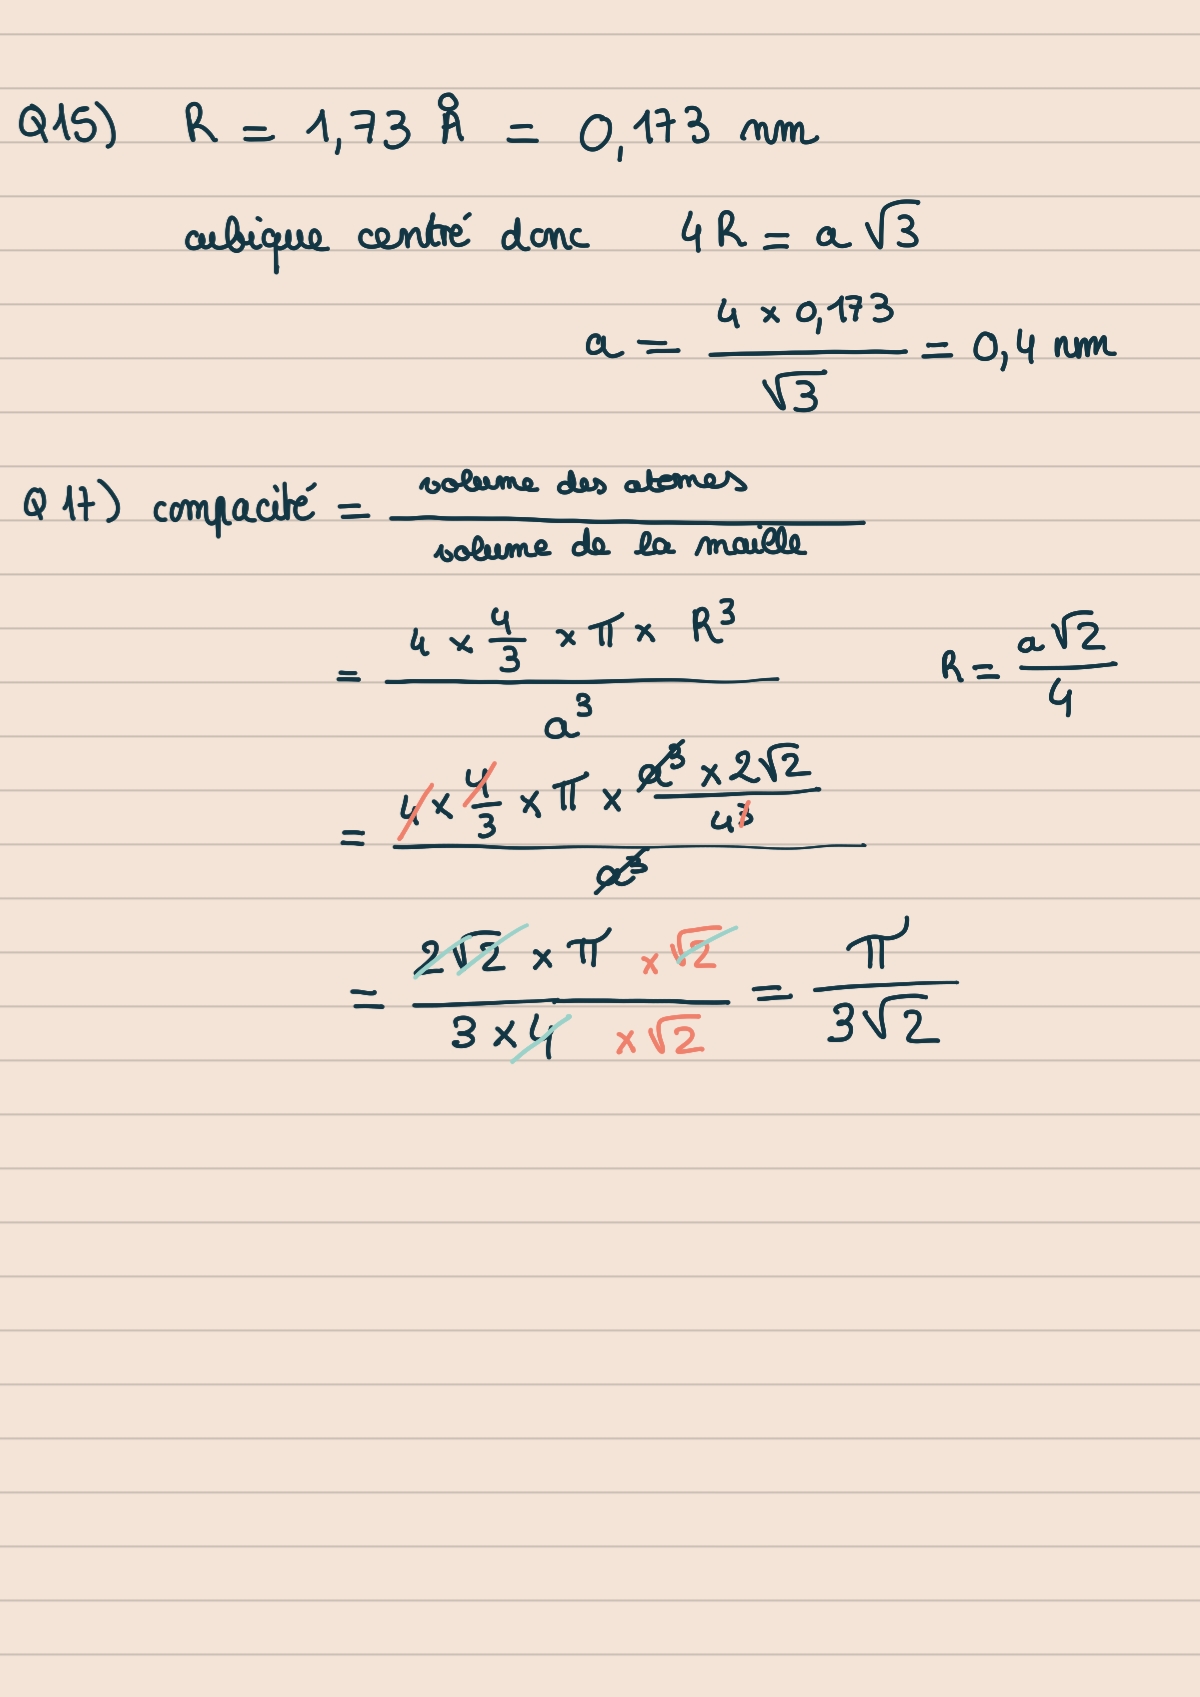 Q15) R = 1,73 Å = 0,173 nm
cubique centré donc 4R = a √3
a = (4 × 0,173) / √3 = 0,4 nm
Q17) compacité = volume des atomes / volume de la maille
= (4 × 4/3 × π × R³) / a³    R = a√2 / 4
= (4 × 4/3 × π × (a³ × 2√2) / 4³) / a³
= (2√2 × π × √2) / (3 × 4 × √2) = π / (3√2)